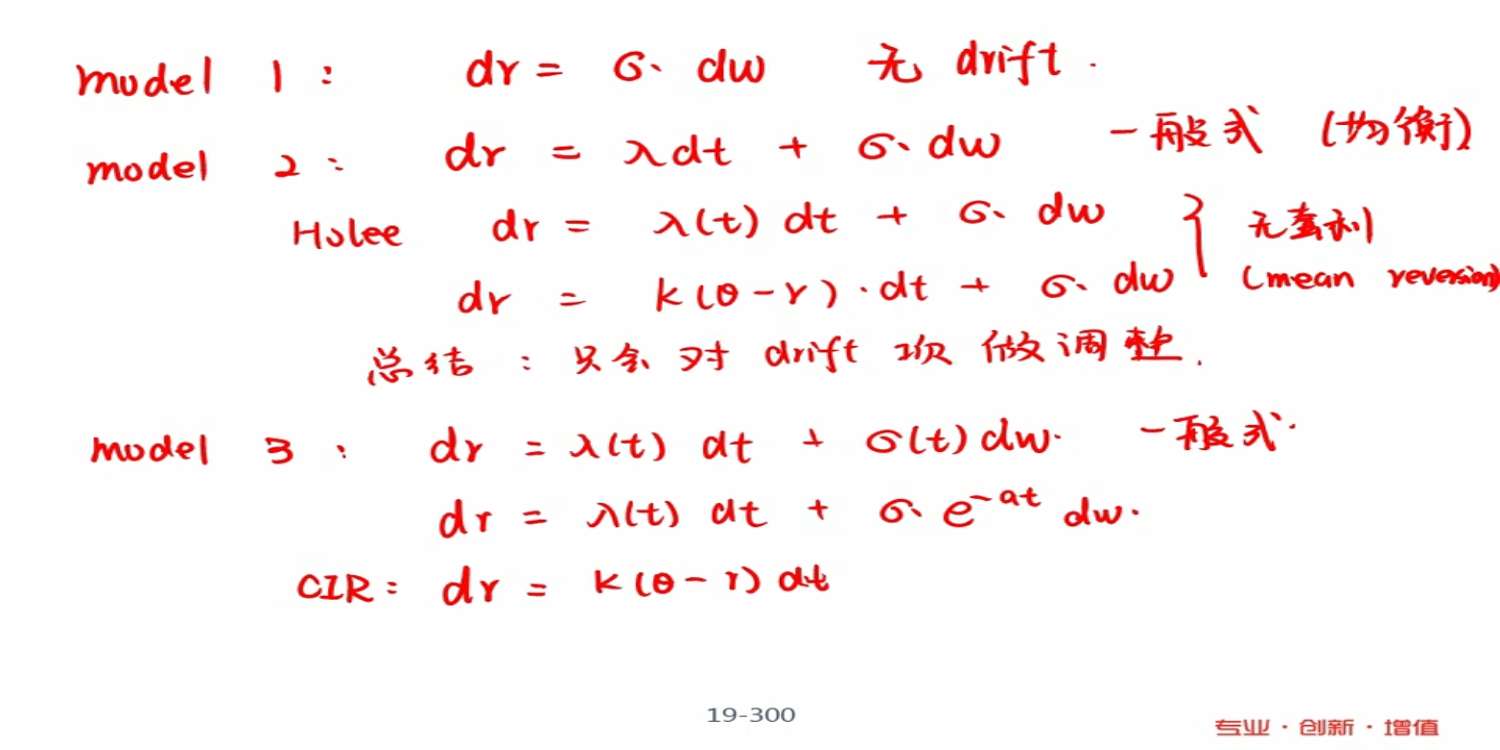 model 1 : dr = σ· dw 无 drift .
model 2 : dr = λdt + σ· dw 一般式 (均衡)
Holee dr = λ(t) dt + σ· dw } 无套利
dr = k(θ-r)·dt + σ· dw (mean reversion)
总结 : 只会 对 drift 项 做调整.
model 3 : dr = λ(t) dt + σ(t) dw· 一般式·
dr = λ(t) dt + σ· e^{-at} dw·
CIR: dr = k(θ-r) dt
19-300
专业·创新·增值